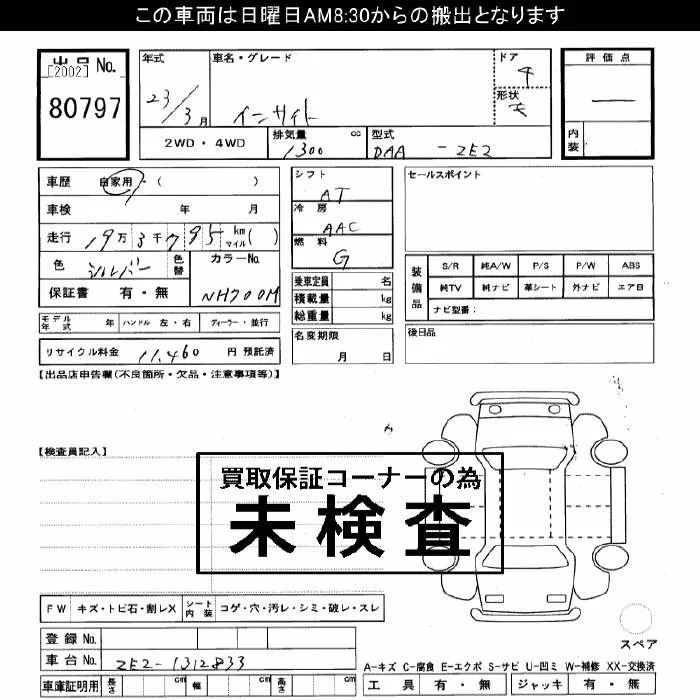 この車両は日曜日AM8:30からの搬出となります
出品 No.
[2002]
80797
年式
23/3月
車名・グレード
インサイト
ドア
4
形状
評価点
内装
2WD・4WD
排気量 cc
1300
型式
DAA - ZE2
車歴 自家用・( )
車検 年 月
走行 19万3千795 km マイル( )
色 シルバー 色替
カラーNo.
NH700M
保証書 有・無
モデル年式 年 ハンドル 左・右 ディーラー・並行
リサイクル料金 11,460 円 預託済
シフト
AT
冷房
AAC
燃料
G
乗車定員 名
積載量 kg
総重量 kg
名変期限
月 日
セールスポイント
装備品
S/R 純A/W P/S P/W ABS
純TV 純ナビ 革シート 外ナビ エアB
ナビ型番:
後日品
【出品店申告欄(不良箇所・欠品・注意事項等)】
【検査員記入】
買取保証コーナーの為
未検査
FW キズ・トビ石・割レX シート内装 コゲ・穴・汚レ・シミ・破レ・スレ
登録 No.
車台 No. ZE2-1312833
車庫証明用 長さ cm 幅 cm 高さ cm
スペア
A-キズ C-腐食 E-エクボ S-サビ U-凹ミ W-補修 XX-交換済
工具 有・無 ジャッキ 有・無